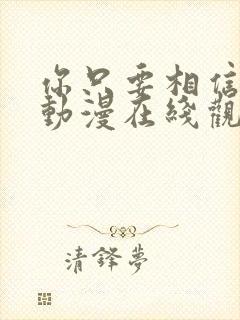 你只要相信
動漫在綫觀
清鋒夢